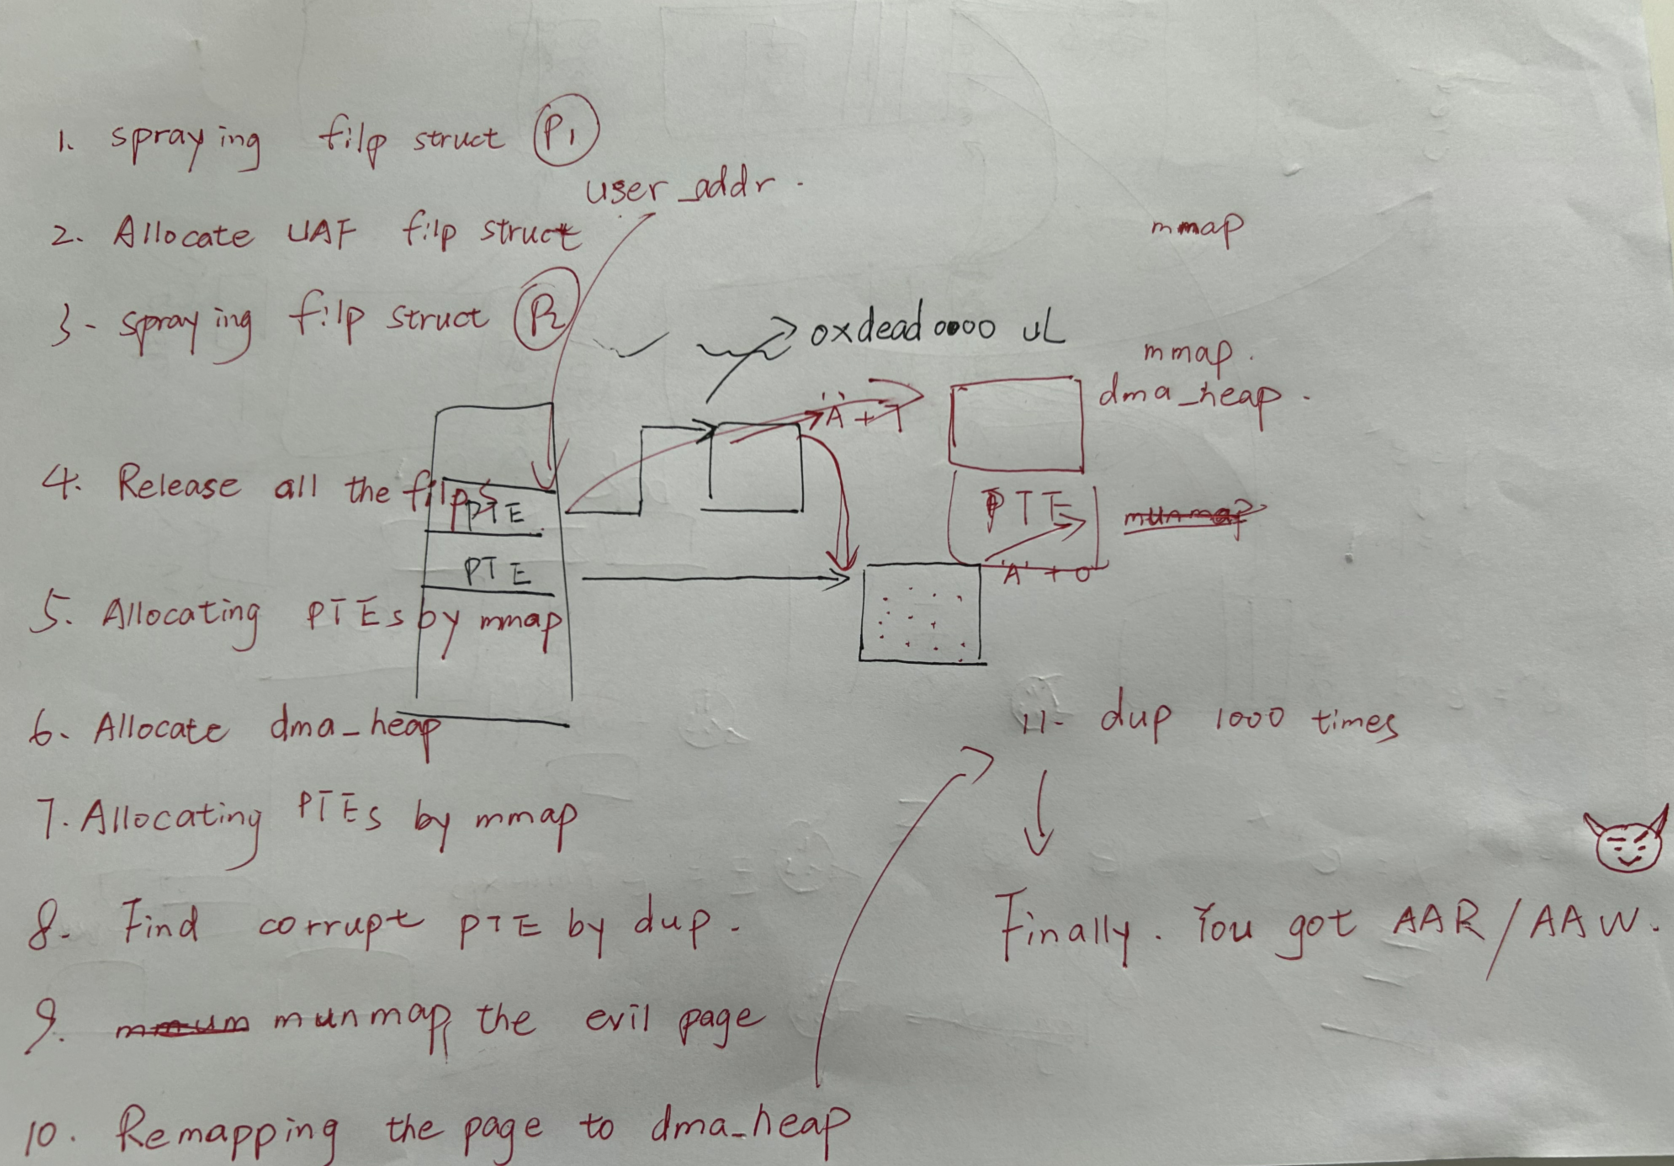 1. spraying filp struct P1
user_addr.
2. Allocate UAF filp struct
mmap
3- spraying filp struct P2
0xdead0000 uL
mmap.
dma_heap.
'A' + 7
4. Release all the filps
PTE
PTE
munmap
PTE
'A' + 0
5. Allocating PTEs by mmap
6. Allocate dma_heap
11. dup 1000 times
7. Allocating PTEs by mmap
8. Find corrupt PTE by dup.
Finally. You got AAR/AAW.
9. munmap the evil page
10. Remapping the page to dma_heap